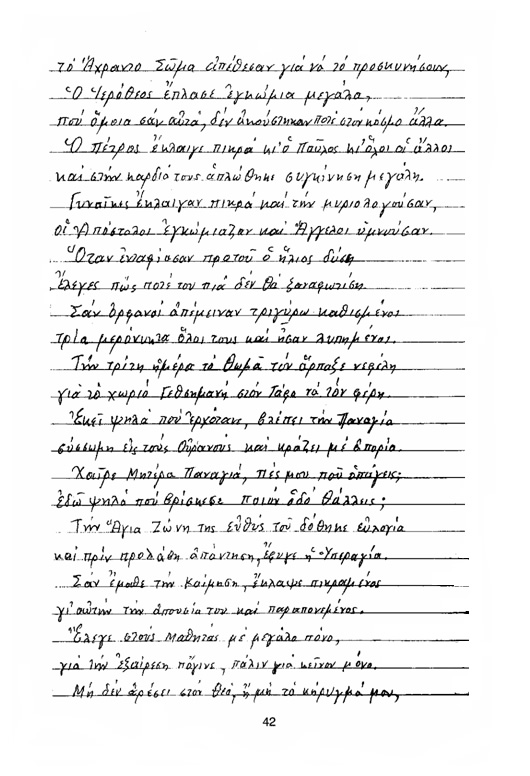 τό Ἄχραντο Σῶμα ἀπέθεσαν γιά νά τό προσκυνήσουν,
Ὁ Ἱερόθεος ἔπλασε ἐγκώμια μεγάλα,
πού ὅμοια σάν αὐτά, δέν ἀκούστηκαν ποτέ στόν κόσμο ἄλλα.
Ὁ Πέτρος ἔκλαιγε πικρά κι' ὁ Παῦλος κι' ὅλοι οἱ ἄλλοι
καί στήν καρδιά τους ἁπλώθηκε συγκίνηση μεγάλη.
Γυναῖκες ἔκλαιγαν πικρά καί τήν μυριολογοῦσαν,
οἱ Ἀπόστολοι ἐγκώμιαζαν καί Ἄγγελοι ὑμνοῦσαν.
Ὅταν ἐνταφίασαν προτοῦ ὁ ἥλιος δύση
ἔλεγες πώς ποτέ του πιά δέν θά ξαναφωτίση.
Σάν ὀρφανοί ἀπέμειναν τριγύρω καθισμένοι
τρία μερόνυκτα ὅλοι τους καί ἦσαν λυπημένοι.
Τήν τρίτη ἡμέρα τό Θωμᾶ τόν ἅρπαξε νεφέλη
γιά τό χωριό Γεθσημανῆ στόν Τάφο τά τόν φέρη.
Ἐκεῖ ψηλά πού ἐρχόταν, βλέπει τήν Παναγία
σύσσωμη εἰς τούς Οὐρανούς καί κράζει μέ ἀπορία.
Χαῖρε Μητέρα Παναγιά, πές μου ποῦ ὑπάγεις;
ἐδῶ ψηλά πού βρίσκεσε ποιόν ὁδό θἄλλεις;
Τήν Ἅγια Ζώνη της εὐθύς τοῦ δόθηκε εὐλογία
καί πρίν προλάβη ἀπάντηση, ἔφυγε ἡ Ὑπεραγία.
Σάν ἔμαθε τήν Κοίμηση, ἔκλαψε πικραμένος
γι' αὐτήν τήν ἀπουσία του καί παραπονεμένος.
Ἔλεγε στούς Μαθητάς μέ μεγάλο πόνο,
γιά τήν ἐξαίρεση πὄγινε, πάλιν γιά κεῖνον μόνο.
Μή δέν ἀρέσει στόν Θεό, ἤ μή τό κήρυγμά μου,
42